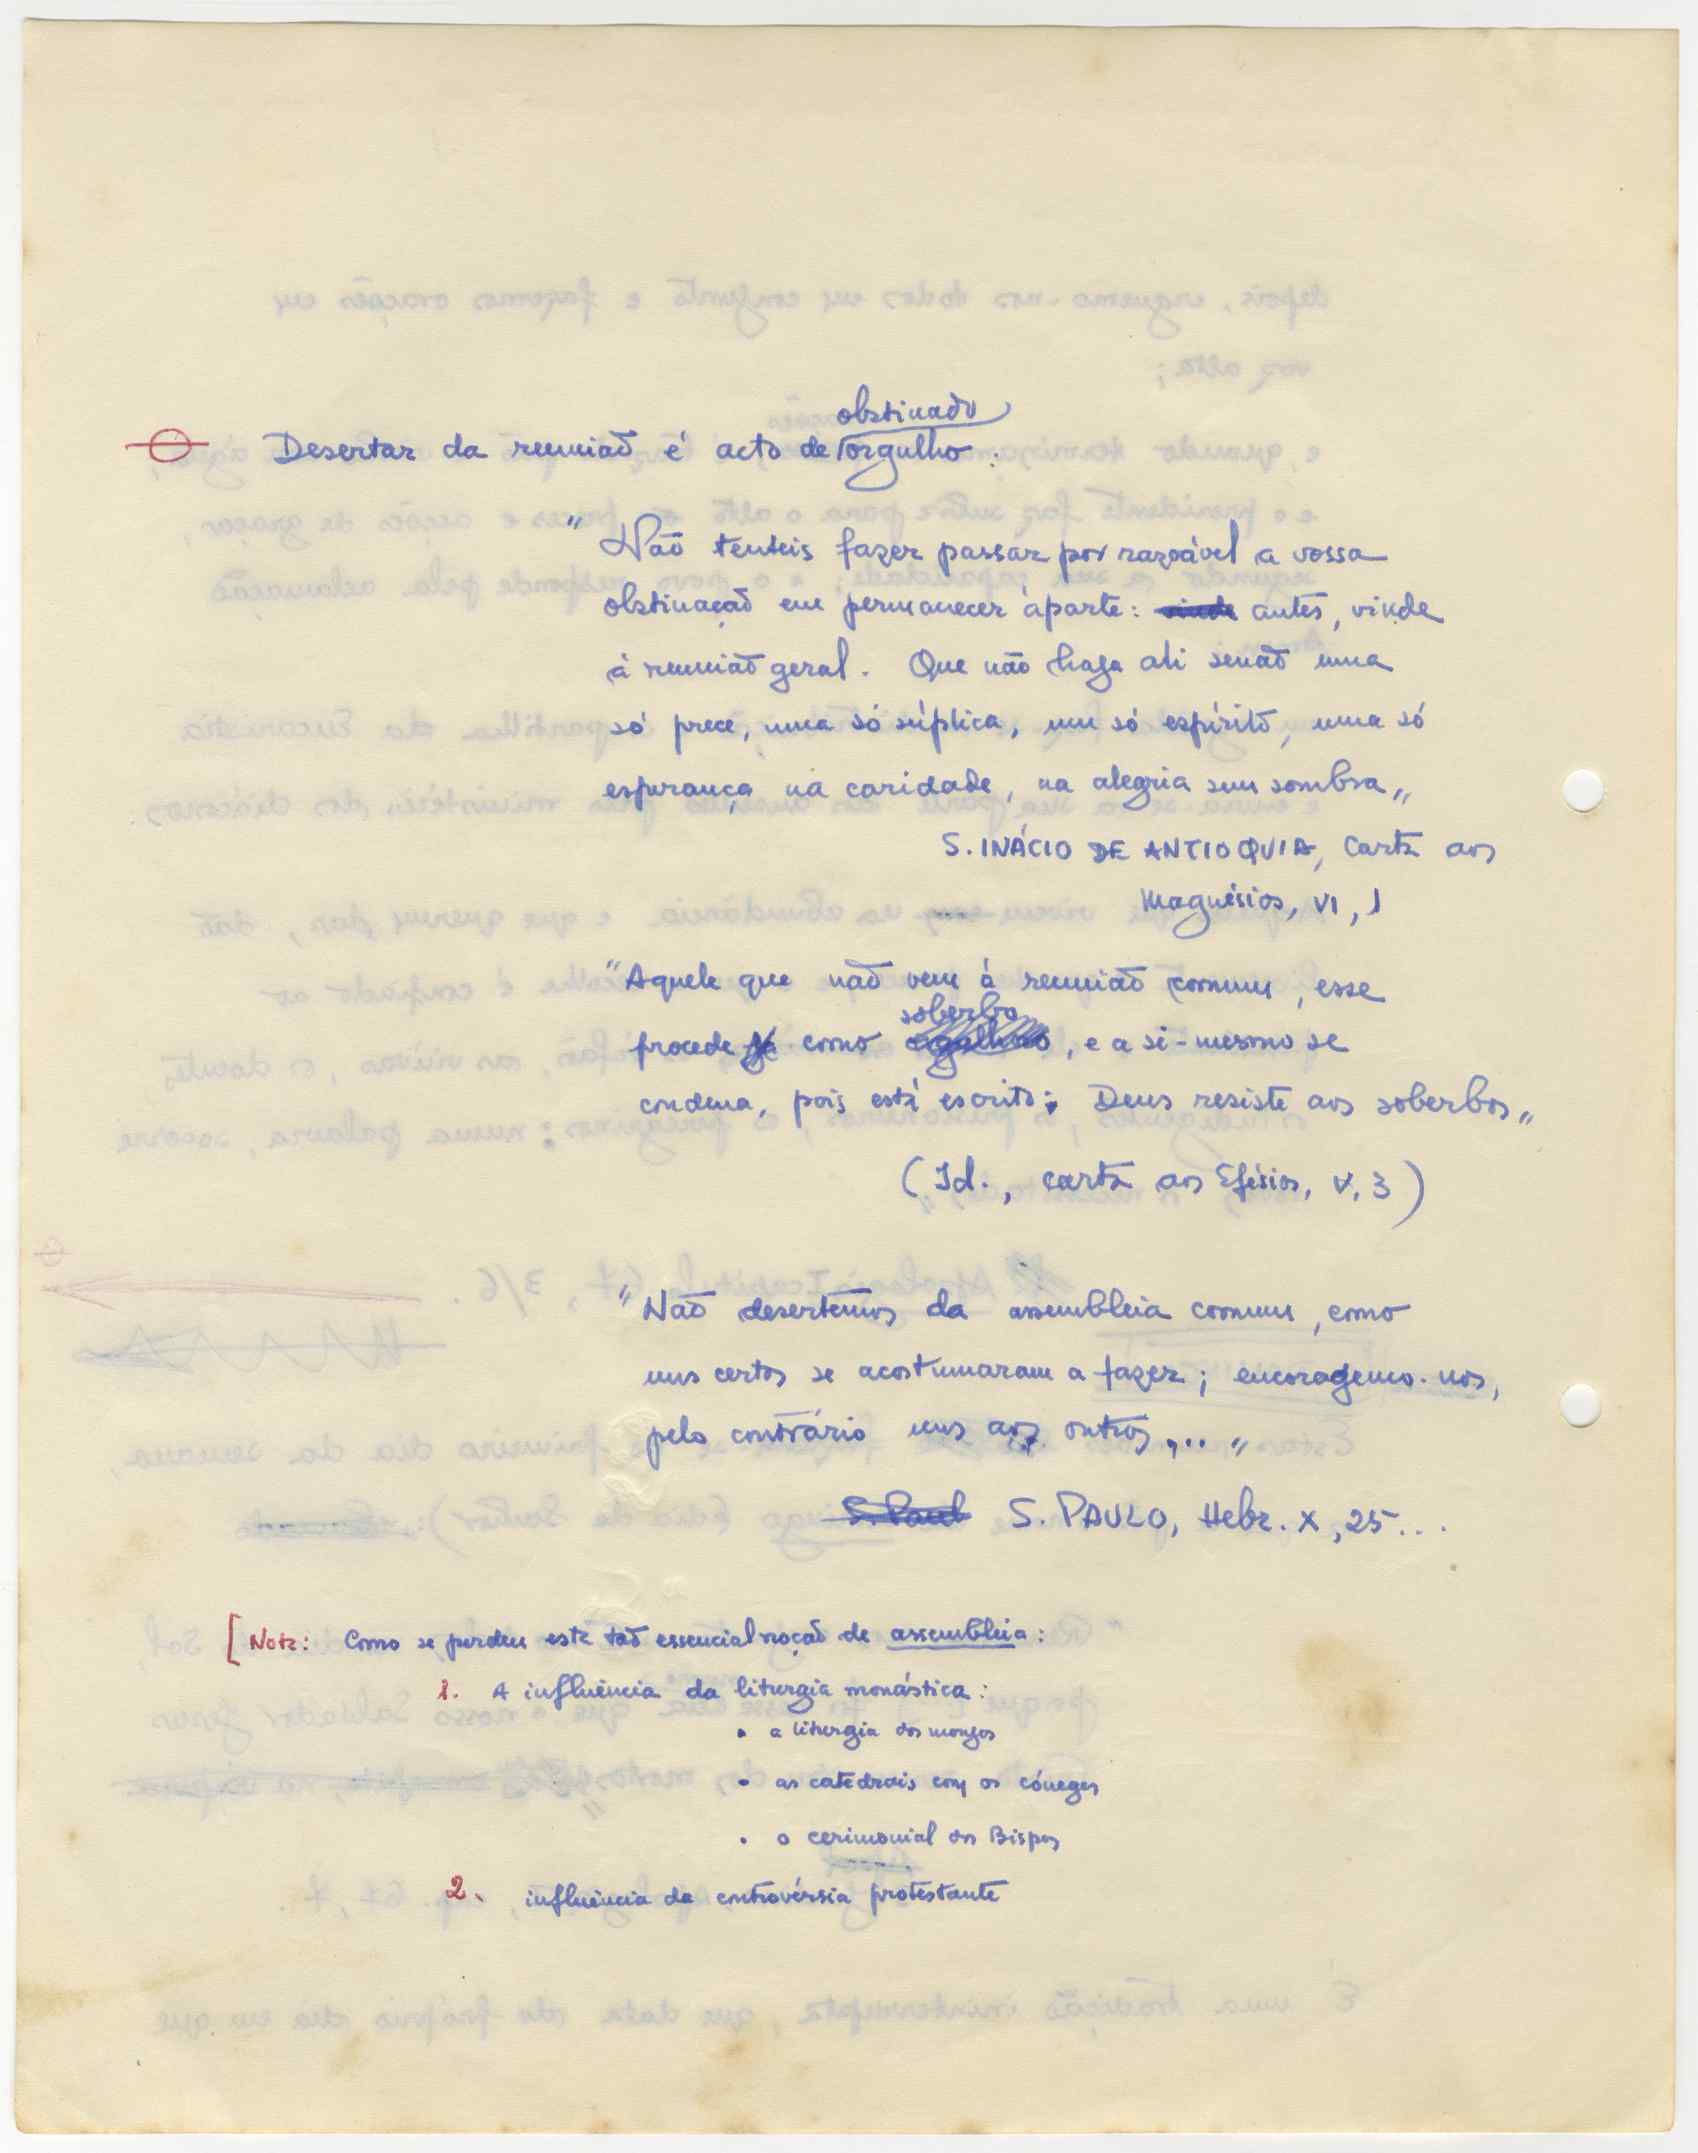 Desertar da reunião é acto de obstinado orgulho:
"Não tenteis fazer passar por razoável a vossa
obstinação em permanecer àparte: vinde antes, vinde
à reunião geral. Que não haja ali senão uma
só prece, uma só súplica, um só espírito, uma só
esperança na caridade, na alegria sem sombra"
S. INÁCIO DE ANTIOQUIA, Carta aos
Magnésios, VI, 1
"Aquele que não vem à reunião comum, esse
soberbo
procede como , e a si-mesmo se
condena, pois está escrito: Deus resiste aos soberbos"
(Id., carta aos Efésios, V, 3)
"Não desertemos da assembleia comum, como
uns certos se acostumaram a fazer; encoragemo-nos,
pelo contrário uns aos outros,..."
S. Paul S. PAULO, Hebr. X, 25...
[Nota: Como se perdeu esta tão essencial noção de assembleia:
1. A influência da liturgia monástica:
• a liturgia dos monges
• as catedrais com os cónegos
• o cerimonial dos Bispos
2. influência da controvérsia protestante